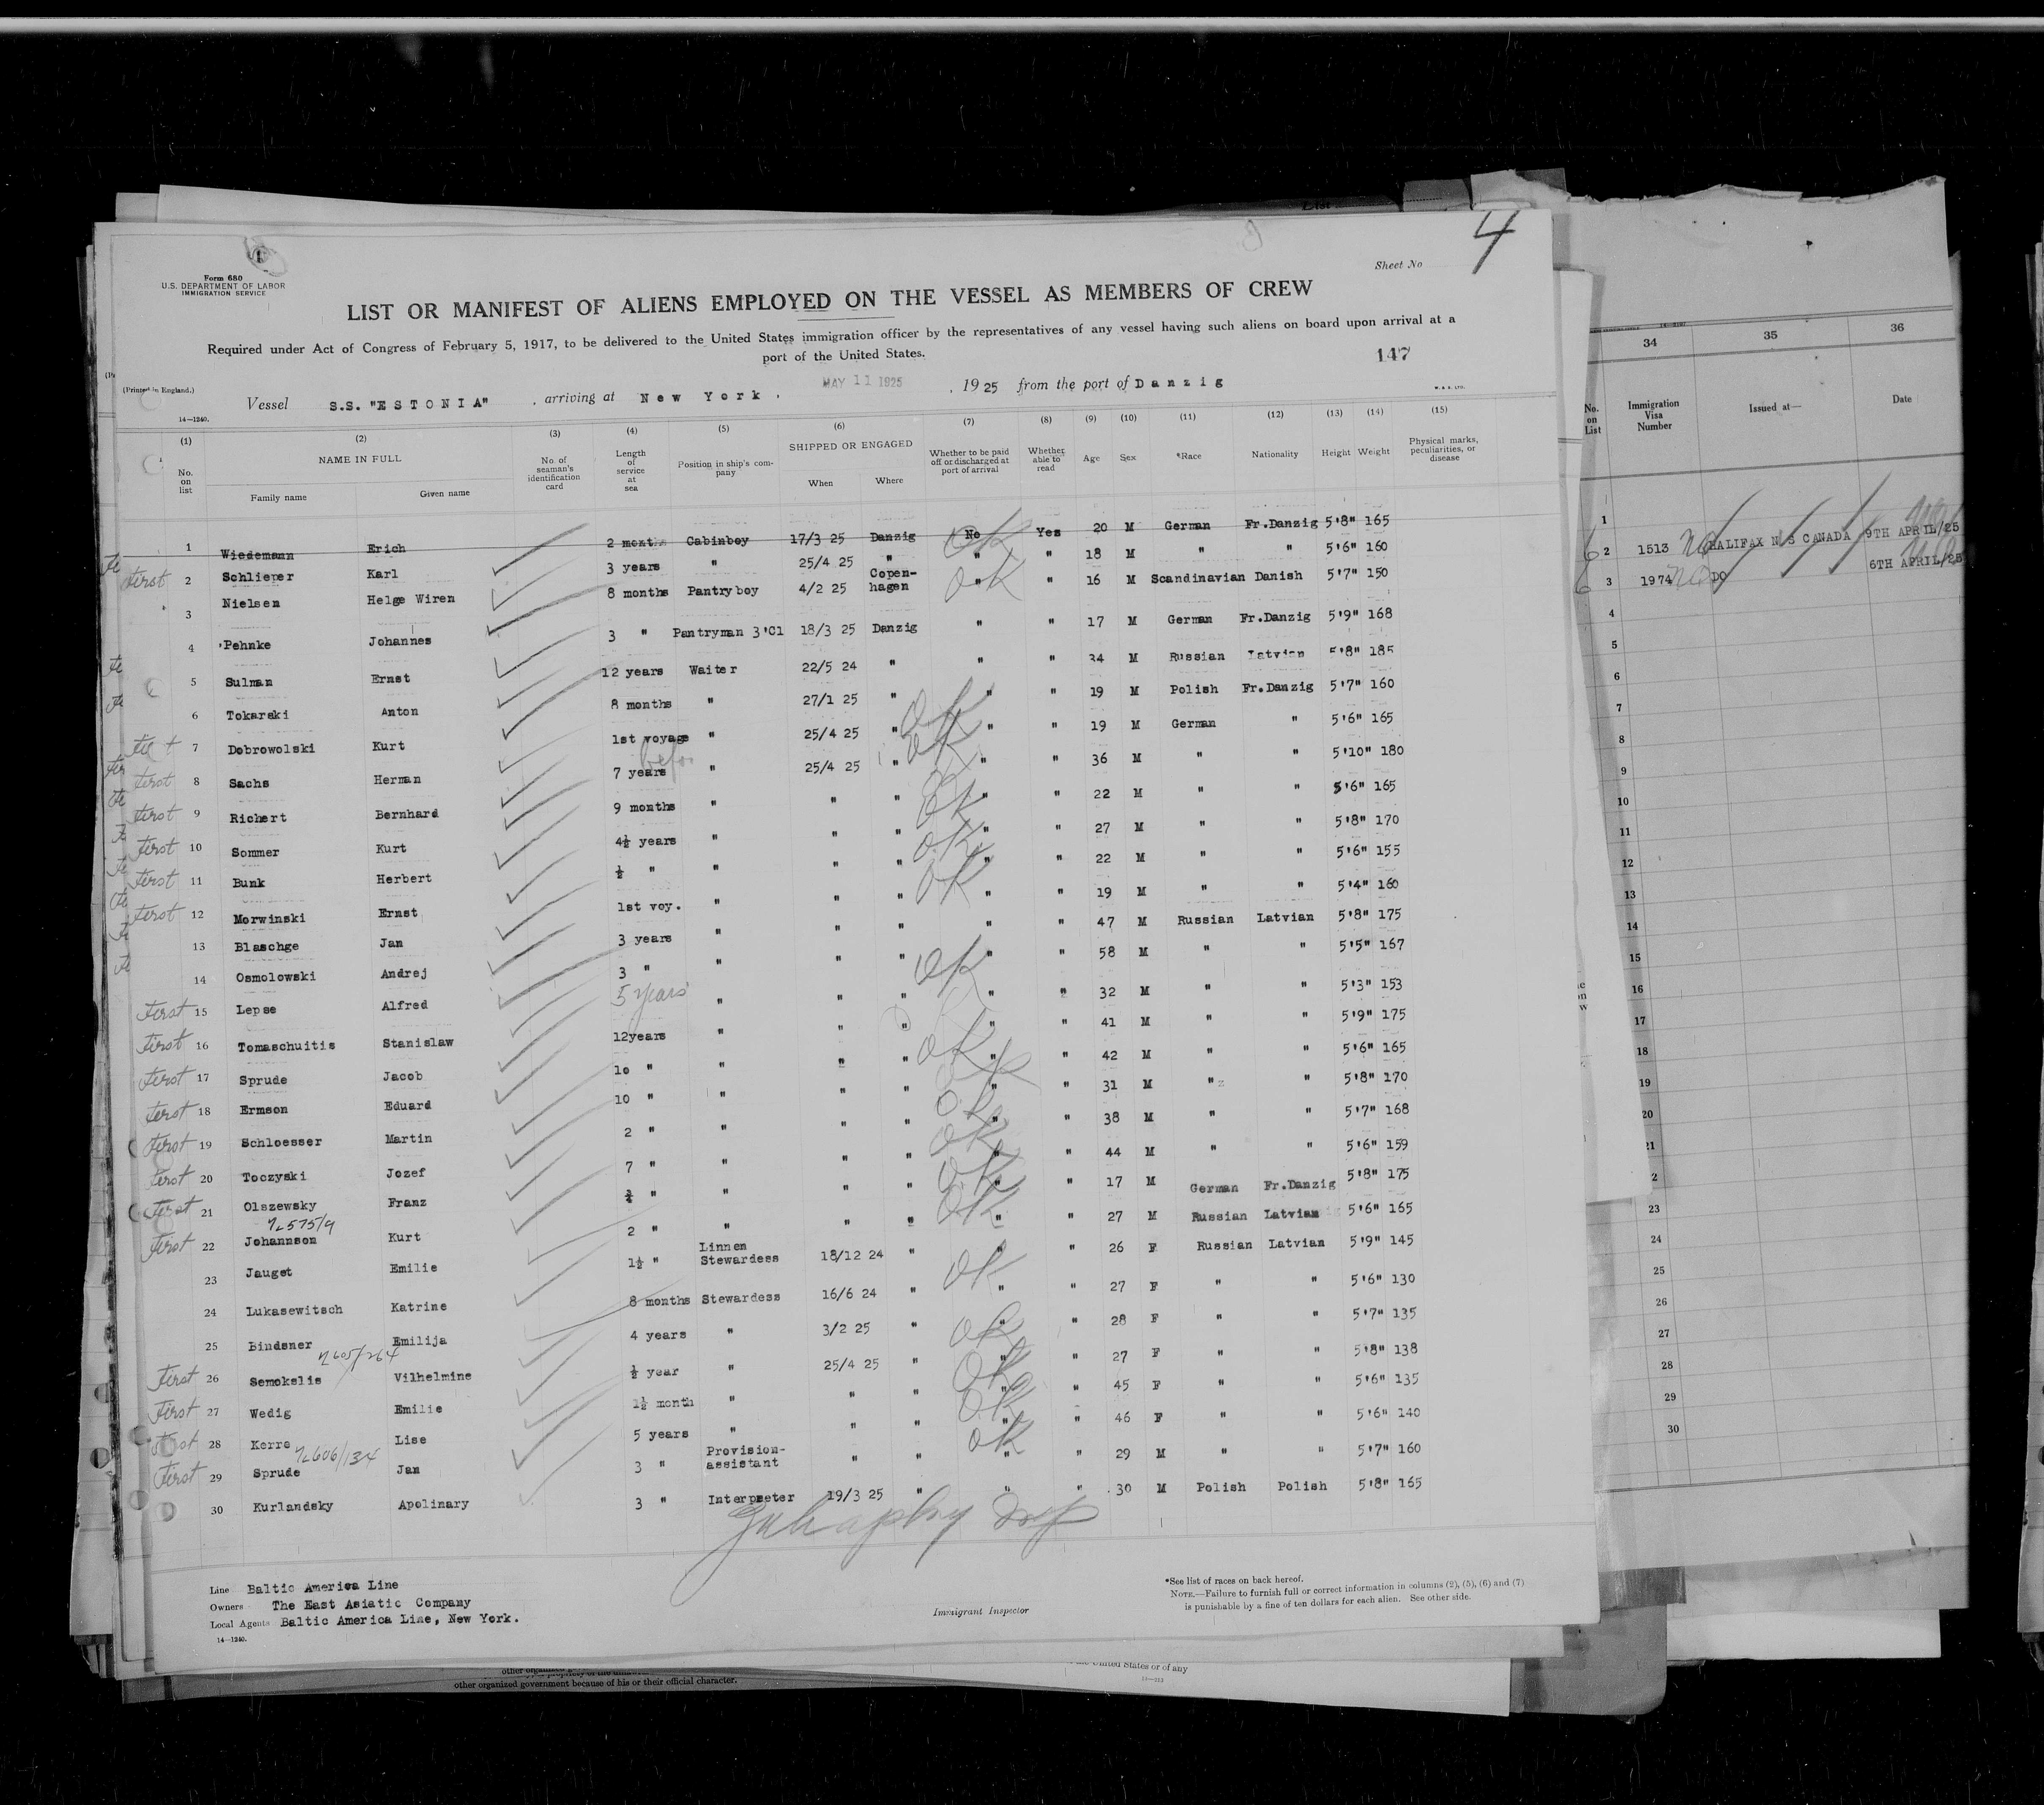 4
Sheet No
Form 680
U.S. DEPARTMENT OF LABOR
IMMIGRATION SERVICE
LIST OR MANIFEST OF ALIENS EMPLOYED ON THE VESSEL AS MEMBERS OF CREW
Required under Act of Congress of February 5, 1917, to be delivered to the United States immigration officer by the representatives of any vessel having such aliens on board upon arrival at a
port of the United States.
147
(Printed in England.)
Vessel S.S. "ESTONIA" , arriving at New York . MAY 11 1925 , 1925 from the port of Danzig
14—1240.
(1) (2) (3) (4) (5) (6) (7) (8) (9) (10) (11) (12) (13) (14) (15)
No. on list NAME IN FULL Family name Given name No. of seaman's identification card Length of service at sea Position in ship's company SHIPPED OR ENGAGED When Where Whether to be paid off or discharged at port of arrival Whether able to read Age Sex *Race Nationality Height Weight Physical marks, peculiarities, or disease
1 Wiedemann Erich 2 months Cabinboy 17/3 25 Danzig No OK Yes 20 M German Fr.Danzig 5'8" 165
First 2 Schlieper Karl 3 years " 25/4 25 " " OK " 18 M " " 5'6" 160
3 Nielsen Helge Wiren 8 months Pantryboy 4/2 25 Copen-hagen " " 16 M Scandinavian Danish 5'7" 150
4 Pehnke Johannes 3 " Pantryman 3'Cl 18/3 25 Danzig " " 17 M German Fr.Danzig 5'9" 168
5 Sulman Ernst 12 years Waiter 22/5 24 " " " 34 M Russian Latvian 5'8" 185
6 Tokarski Anton 8 months " 27/1 25 " " " 19 M Polish Fr.Danzig 5'7" 160
7 Dobrowolski Kurt 1st voyage " 25/4 25 " OK " " 19 M German " 5'6" 165
First 8 Sachs Herman 7 years " 25/4 25 " OK " " 36 M " " 5'10" 180
First 9 Richert Bernhard 9 months " " " OK " " 22 M " " 5'6" 165
First 10 Sommer Kurt 4½ years " " " OK " " 27 M " " 5'8" 170
First 11 Bunk Herbert ½ " " " " OK " " 22 M " " 5'6" 155
First 12 Morwinski Ernst 1st voy. " " " " " 19 M " " 5'4" 160
13 Blaschge Jan 3 years " " " " " 47 M Russian Latvian 5'8" 175
14 Osmolowski Andrej 3 " " " " OK " " 58 M " " 5'5" 167
First 15 Lepse Alfred 5 years " " " " " 32 M " " 5'3" 153
First 16 Tomaschuitis Stanislaw 12years " " " " " 41 M " " 5'9" 175
First 17 Sprude Jacob 10 " " " " OK " " 42 M " " 5'6" 165
First 18 Ermson Eduard 10 " " " " OK " " 31 M " " 5'8" 170
First 19 Schloesser Martin 2 " " " " OK " " 38 M " " 5'7" 168
First 20 Toczyski Jozef 7 " " " " OK " " 44 M " " 5'6" 159
First 21 Olszewsky Franz ¾ " " " " OK " " 17 M German Fr.Danzig 5'8" 175
First 22 Johannson Kurt 2 " " " " OK " " 27 M Russian Latvian 5'6" 165
23 Jauget Emilie 1½ " Linnen Stewardess 18/12 24 " OK " " 26 F Russian Latvian 5'9" 145
24 Lukasewitsch Katrine 8 months Stewardess 16/6 24 " " " 27 F " " 5'6" 130
25 Bindsner Emilija 4 years " 3/2 25 " OK " " 28 F " " 5'7" 135
First 26 Semokslis Vilhelmine ½ year " 25/4 25 " OK " " 27 F " " 5'8" 138
First 27 Wedig Emilie 1½ month " " " OK " " 45 F " " 5'6" 135
First 28 Kerre Lise 5 years " " " OK " " 46 F " " 5'6" 140
First 29 Sprude Jan 3 " Provision-assistant " " " " 29 M " " 5'7" 160
30 Kurlandsky Apolinary 3 " Interpreter 19/3 25 " " " 30 M Polish Polish 5'8" 165
Line Baltic America Line
Owners The East Asiatic Company
Local Agents Baltic America Line, New York.
14—1240.
Immigrant Inspector
*See list of races on back hereof.
NOTE.—Failure to furnish full or correct information in columns (2), (5), (6) and (7)
is punishable by a fine of ten dollars for each alien. See other side.
other organized government because of his or their official character.
34 35 36
No. on List Immigration Visa Number Issued at— Date
1
2 1513 HALIFAX N S CANADA 9TH APRIL/25
3 1974 DO 6TH APRIL/25
4
5
6
7
8
9
10
11
12
13
14
15
16
17
18
19
20
21
2
23
24
25
26
27
28
29
30